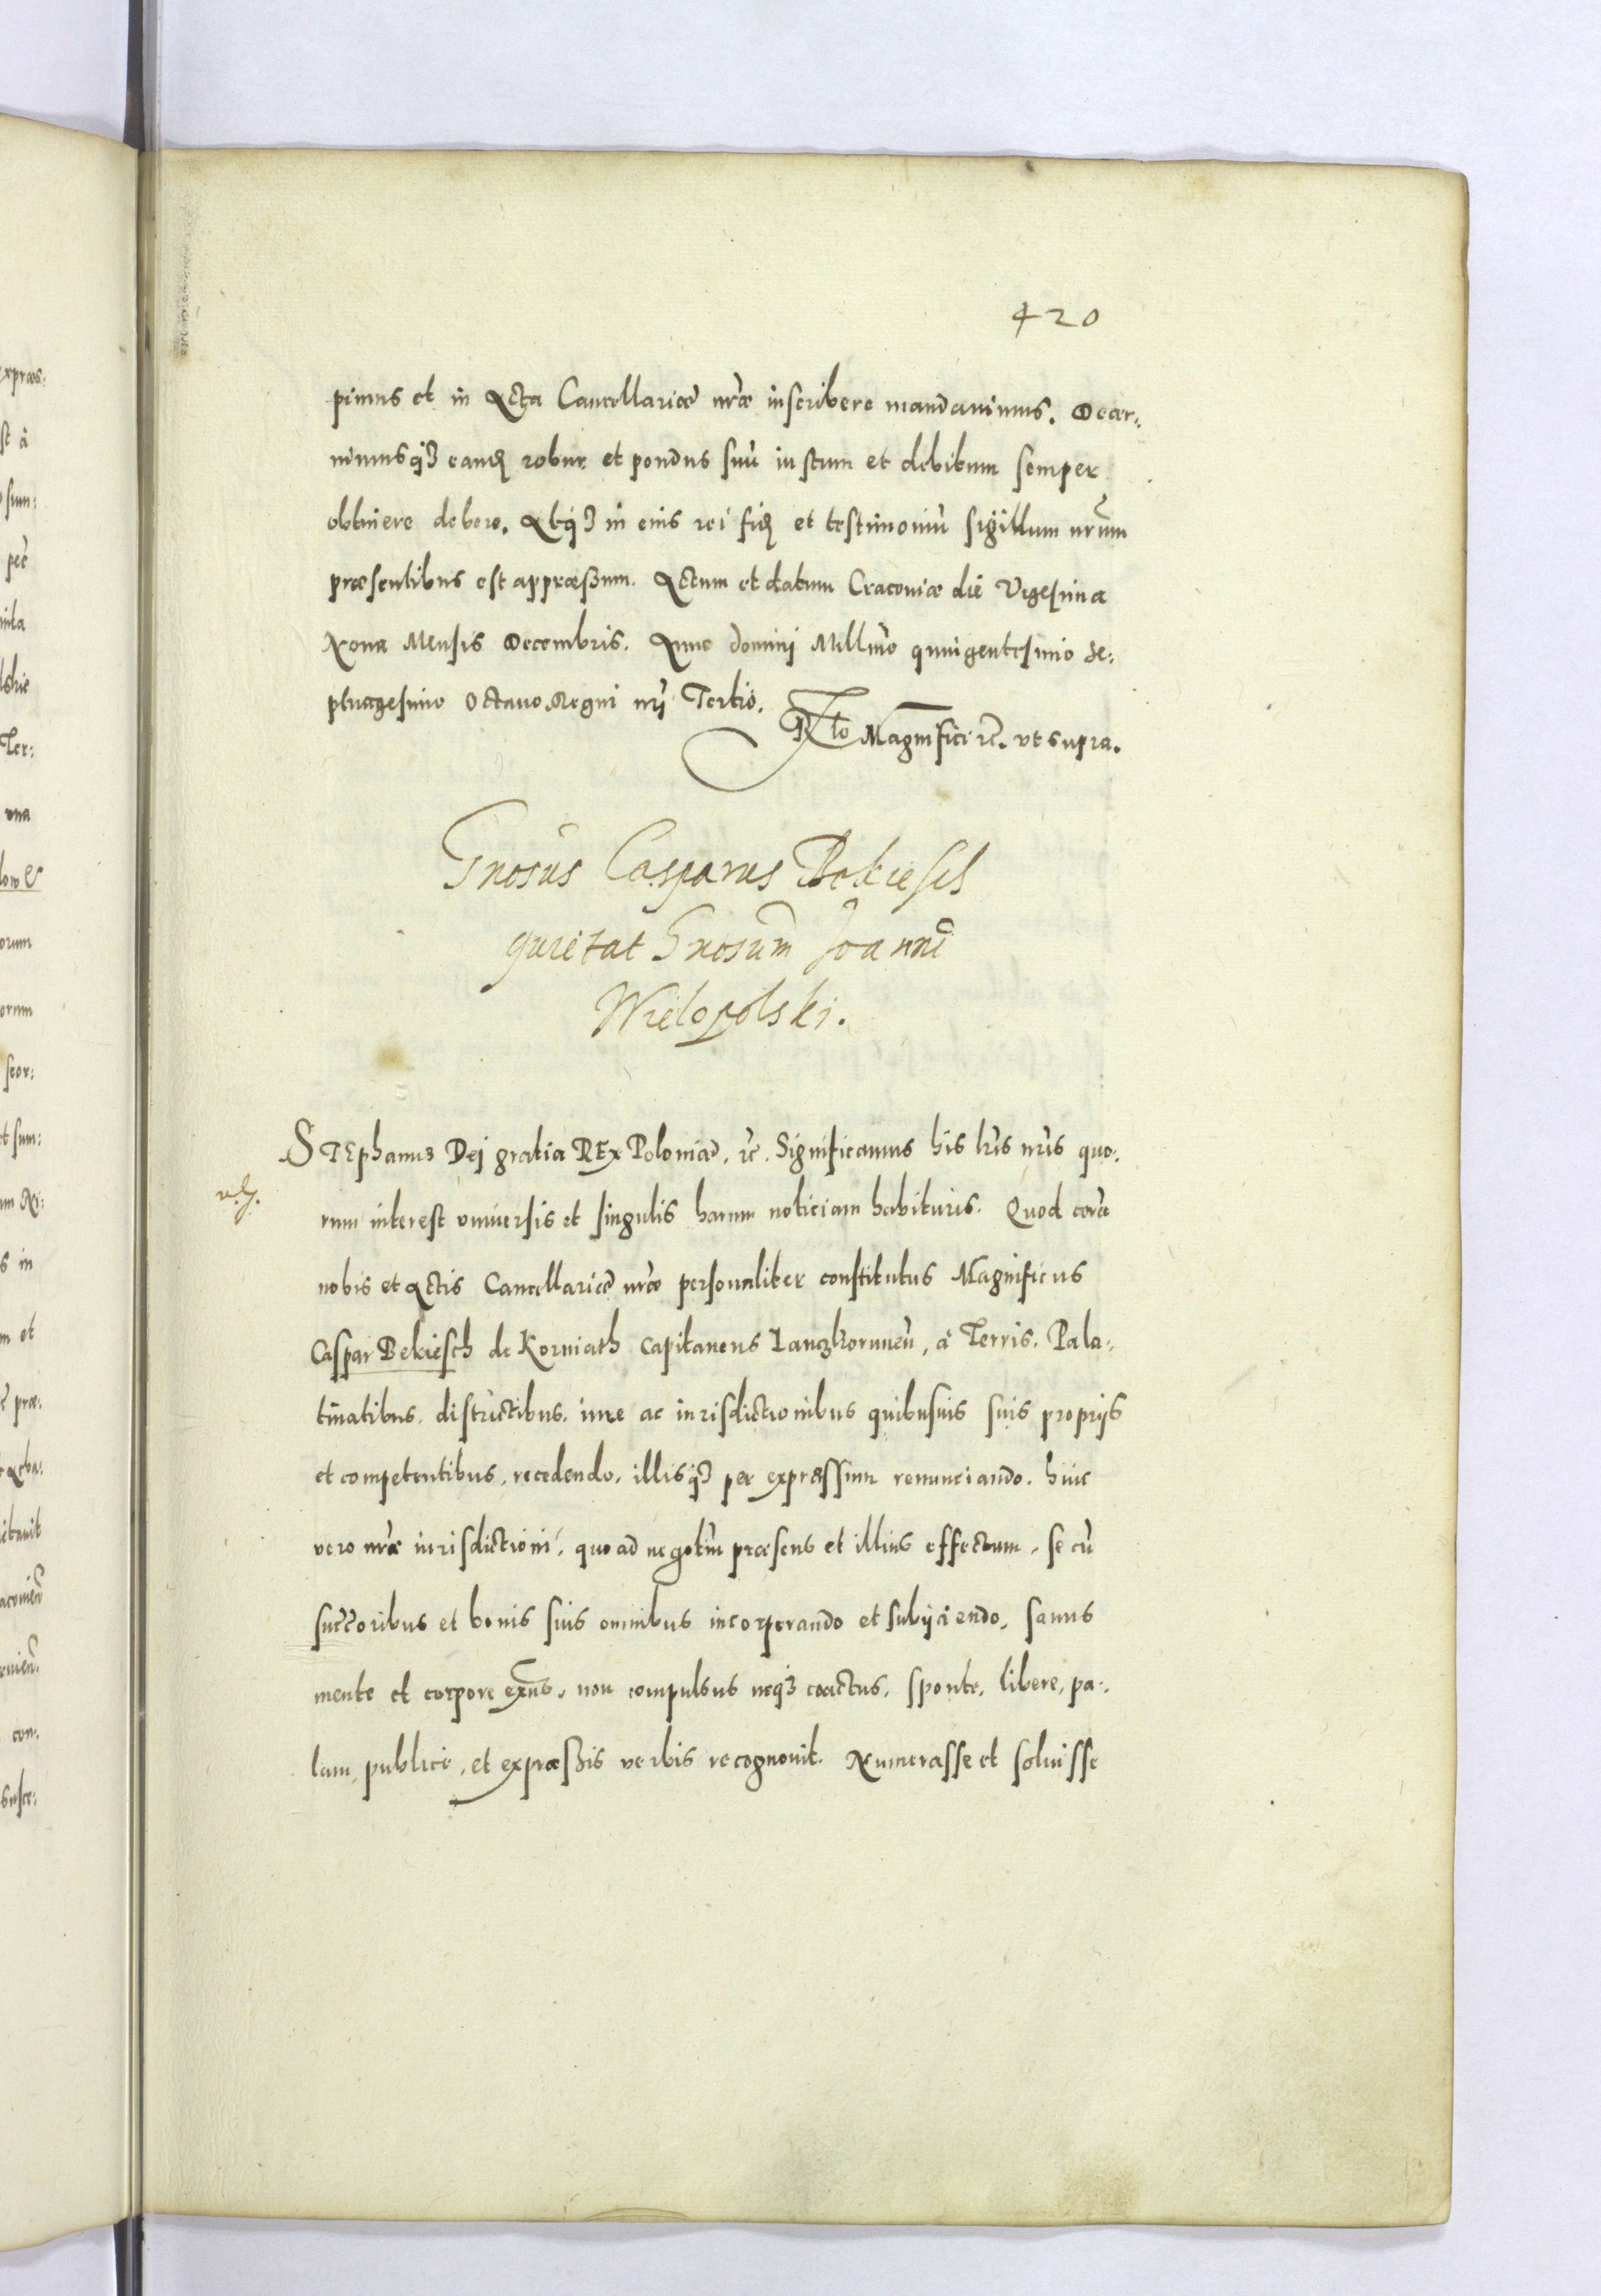 420
pimus et in Acta Cancellariæ nr̃æ inscribere mandauimus. Decer:
nimusq3 eandꝫ robur et pondus suũ iustum et debitum semper
obtinere debere. Atq3 in eius rei fidꝫ et testimoniũ sigillum nr̃um
præsentibus est appræssum. Actum et datum Cracouiæ die Vigesima
Nona Mensis Decembris. Anno domini Millm̃o quingentesimo Se:
ptuagesimo Octauo. Regni nr̃j Tertio.
Rlo Magnifici rc. vt supra.
Gnosus Casparus Bekiesch
quietat Gnosum Joanne
Wielopolski.
STEphanus Dej gratia REx Poloniæ. rc. Significamus his lr̃is nr̃is quo:
rum interest vniuersis et singulis harum noticiam habituris. Quod corã
nobis et Actis Cancellariæ nr̃æ personaliter constitutus Magnificus
Caspar Bekiesch de Korniath Capitaneus Lanczkorunen̄, à Terris. Pala:
tinatibus. districtibus. iure ac iurisdictionibus quibusuis suis proprijs
et competentibus. recedendo. illisq3 per expræssum renunciando. huic
vero nr̃æ iurisdictioni, quo ad negotiũ præsens et illius effectum, se cũ
succ̃oribus et bonis suis omnibus incorporando et subijciendo, sanus
mente et corpore exñs, non compulsus neq3 coactus, sponte, libere, pa:
lam, publice, et expræssis verbis recognouit. Numerasse et soluisse